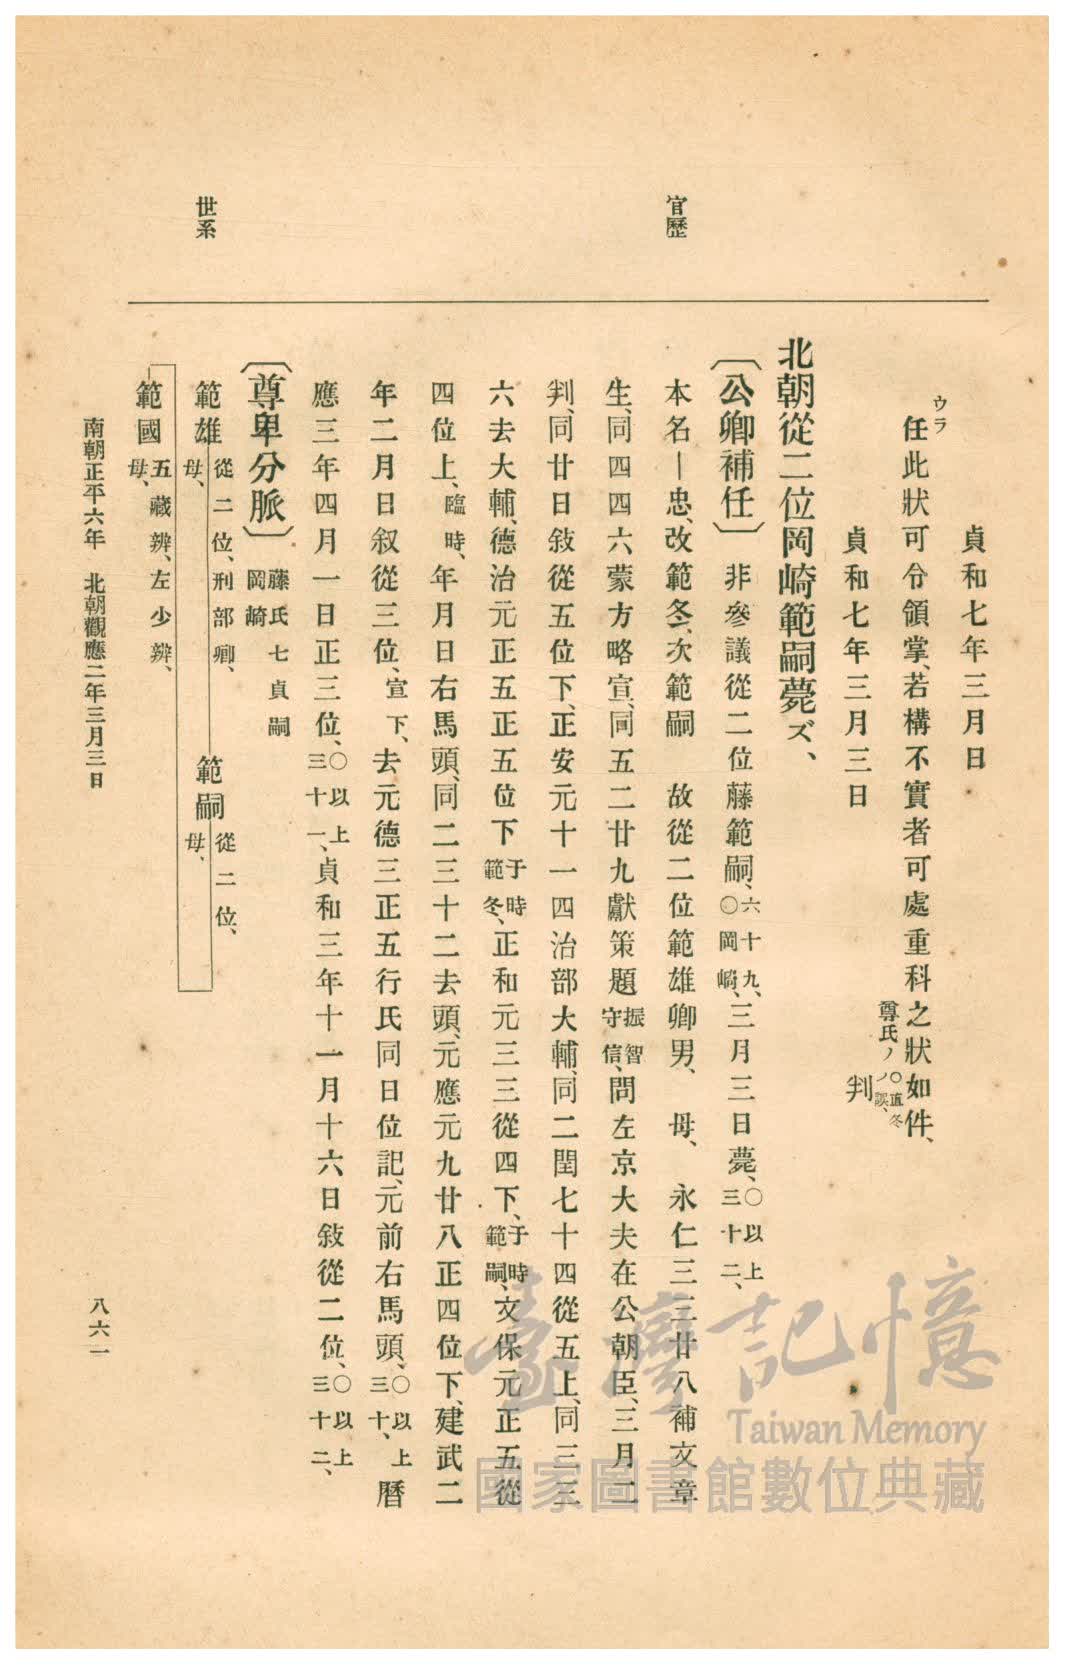 貞和七年三月日
ウラ
任此狀可令領掌、若構不實者可處重科之狀如件、
貞和七年三月三日
尊氏ノ〇直冬ノ誤、
判
北朝從二位岡崎範嗣薨ズ、
官歷
〔公卿補任〕非參議從二位藤範嗣、六十九、〇岡崎、三月三日薨、〇以上三十二、
本名―忠、改範冬、次範嗣　故從二位範雄卿男、母、永仁三三廿八補文章
生、同四四六蒙方略宣、同五二廿九獻策題振智守信、問左京大夫在公朝臣、三月二
判、同廿日敍從五位下、正安元十一四治部大輔、同二閏七十四從五上、同三三
六去大輔、德治元正五正五位下于時範冬、正和元三三從四下、于時範嗣、文保元正五從
四位上、臨時、年月日右馬頭、同二三十二去頭、元應元九廿八正四位下、建武二
年二月日叙從三位、宣下、去元德三正五行氏同日位記、元前右馬頭、〇以上三十、曆
應三年四月一日正三位、〇以上三十一、貞和三年十一月十六日敍從二位、〇以上三十二、
世系
〔尊卑分脈〕藤氏七貞嗣岡崎
範雄從二位、刑部卿、母、
範嗣從二位、母、
範國五藏辨、左少辨、母、
南朝正平六年　北朝觀應二年三月三日
八六一
臺灣記憶
Taiwan Memory
國家圖書館數位典藏